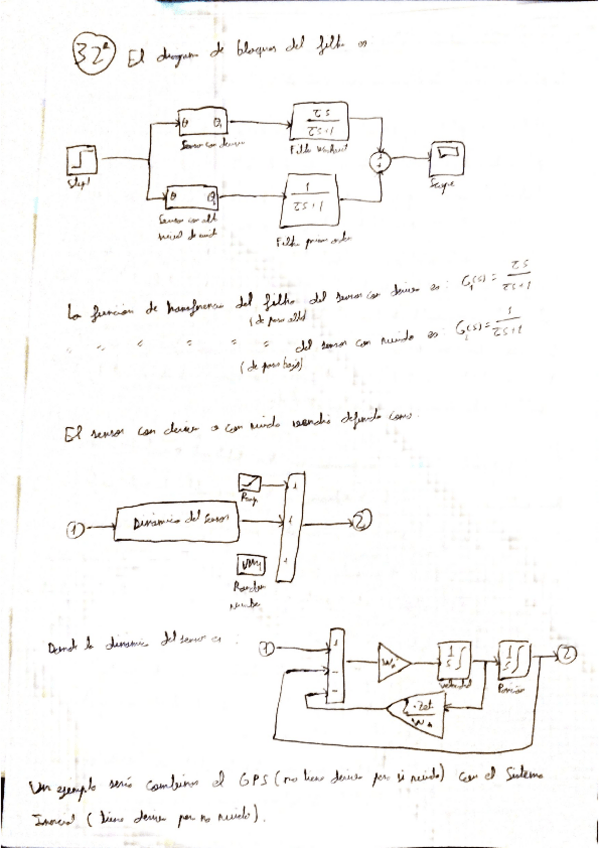 32ª El diagrama de bloques del filtro es
Step1
θ θ₁
Sensor con deriva
τs
τs+1
Filtro washout
Scope
θ θ₁
Sensor con alto
nivel de ruido
1
τs+1
Filtro primer orden
La función de transferencia del filtro del sensor con deriva es: G₁(s) = τs / τs+1
(de paso alto)
" " " " " " del sensor con ruido es G₂(s) = 1 / τs+1
(de paso bajo)
El sensor con deriva o con ruido vendría definido como:
Ramp
1 Dinámica del sensor 2
Random
number
Donde la dinámica del sensor es:
1 1/s ∫ 1/s ∫ 2
velocidad Posición
Un ejemplo sería combinar el GPS (no tiene deriva pero sí ruido) con el Sistema
Inercial (tiene deriva pero no ruido).